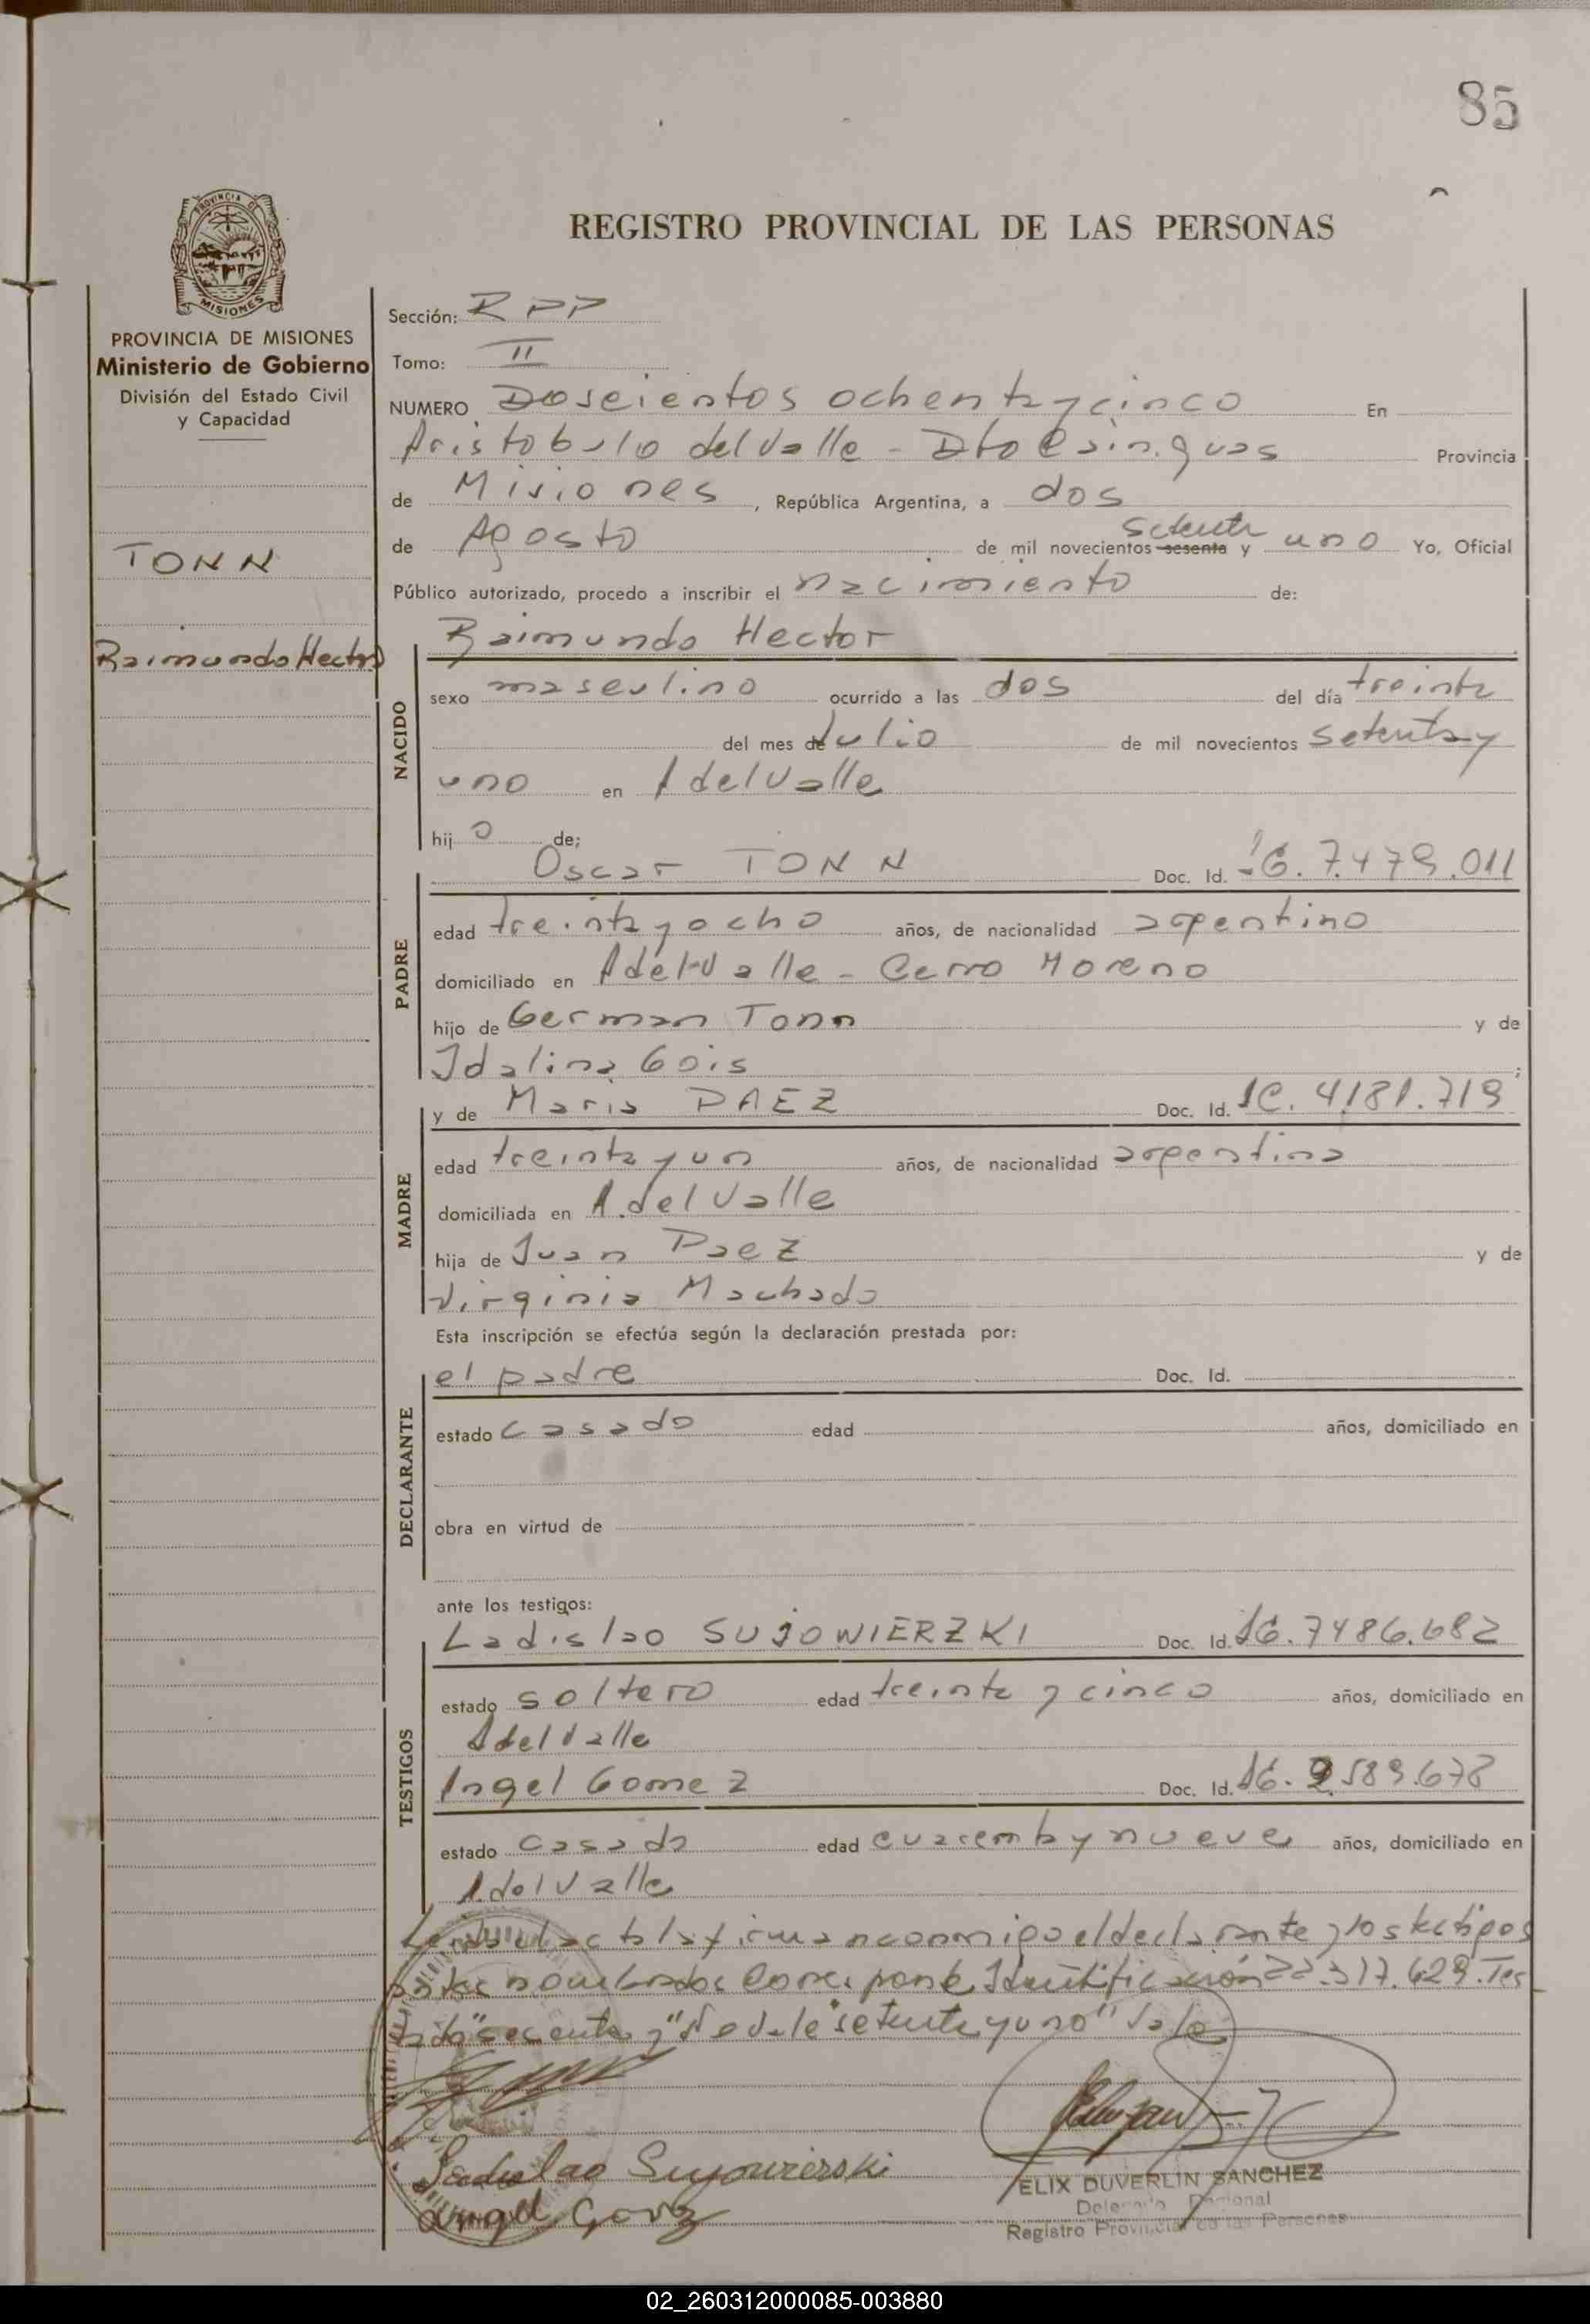 85
PROVINCIA DE
MISIONES
REGISTRO PROVINCIAL DE LAS PERSONAS
PROVINCIA DE MISIONES
Ministerio de Gobierno
División del Estado Civil
y Capacidad
TONN
Raimundo Hector
Sección: RPP
Tomo: II
NUMERO Doscientos ochenta y cinco En
Aristobulo del Valle - Dto Cainguas Provincia
de Misiones, República Argentina, a dos
setenta
de Agosto de mil novecientos sesenta y uno Yo, Oficial
Público autorizado, procedo a inscribir el nacimiento de:
NACIDO
Raimundo Hector
sexo masculino ocurrido a las dos del día treinta
del mes de Julio de mil novecientos setenta y
uno en A del Valle
hij o de;
PADRE
Oscar TONN Doc. Id. 7.479.011
edad treinta y ocho años, de nacionalidad argentino
domiciliado en A del Valle - Cerro Moreno
hijo de German Tonn y de
Idalina Gois;
MADRE
y de Maria PAEZ Doc. Id. LC. 4.181.719
edad treinta y un años, de nacionalidad argentina
domiciliada en A. del Valle
hija de Juan Paez y de
Virginia Machado
Esta inscripción se efectúa según la declaración prestada por:
DECLARANTE
el padre Doc. Id.
estado casado edad años, domiciliado en
obra en virtud de
ante los testigos:
TESTIGOS
Ladislao SUJOWIERZKI Doc. Id. 7486.682
estado soltero edad treinta y cinco años, domiciliado en
A del Valle
Angel Gomez Doc. Id. 589.678
estado casado edad cuarenta y nueve años, domiciliado en
A. del Valle
Leida el acta la firman conmigo el declarante y los testigos
nombrados Corresponde Identificación 22.317.629. Tes
tado "sesenta y" No vale "setenta y uno" Vale
Ladislao Sujowierski
Angel Gomez
ELIX DUVERLIN SANCHEZ
Delegado Regional
Registro Provincial de las Personas
02_260312000085-003880